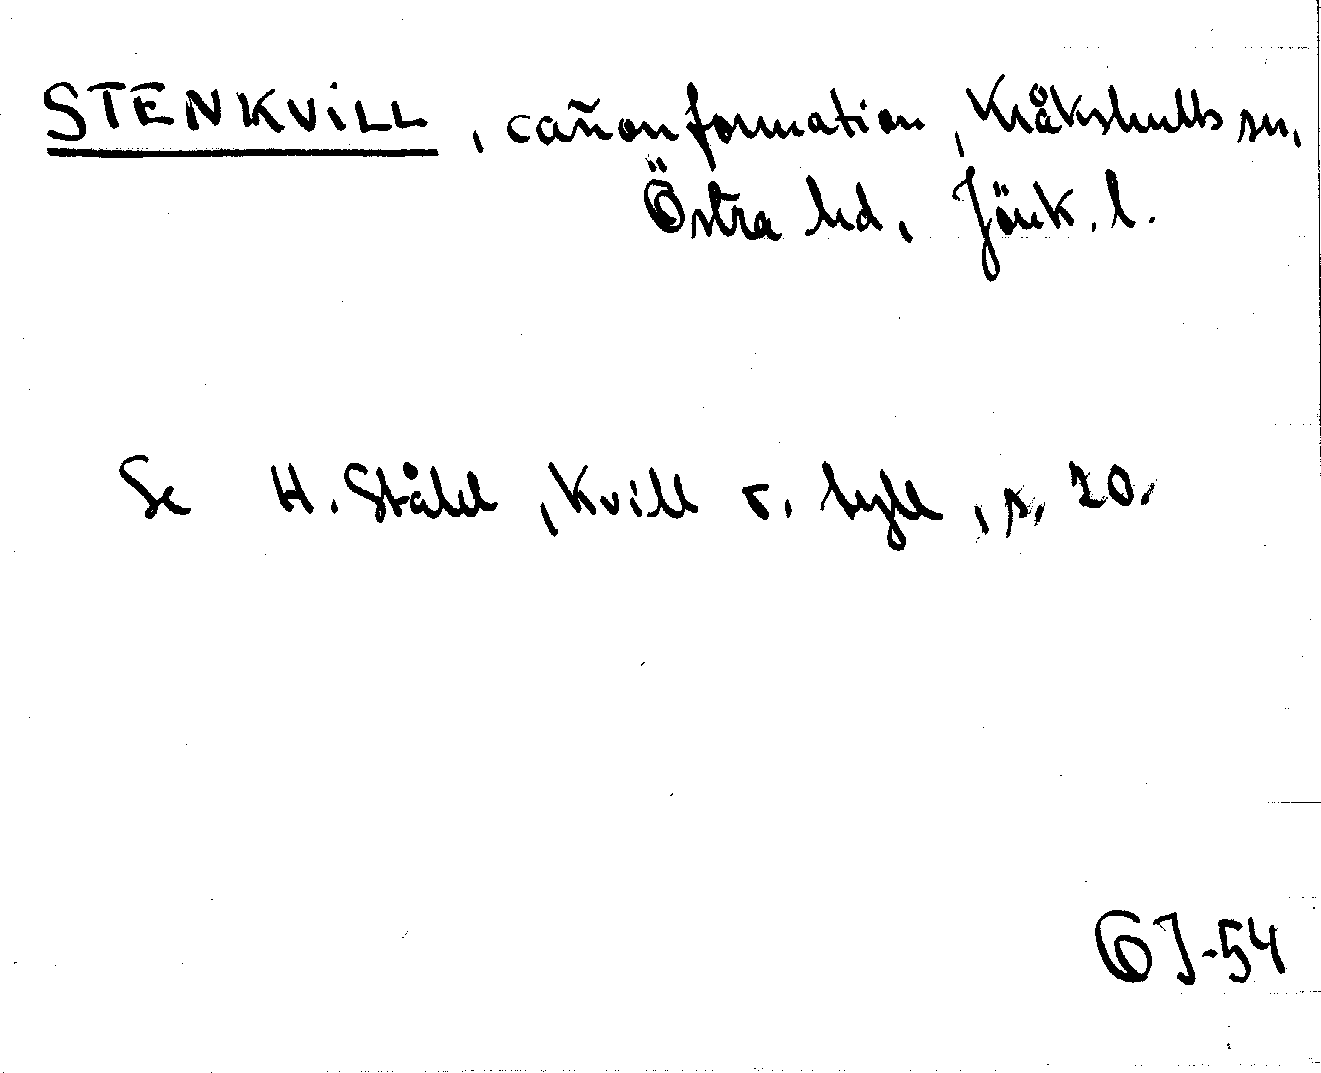 STENKVILL, cañonformation, Kråkshults sn,
Östra hd, Jönk. l.
Se H. Ståhl, Kvill o. tyll, p. 20.
GJ-54